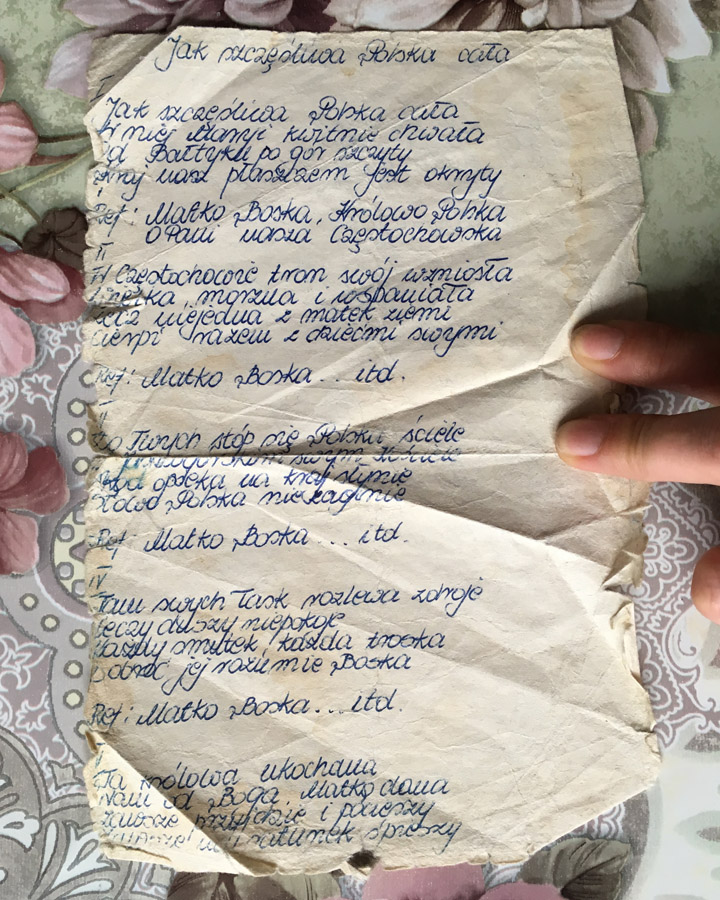 Jak szczęśliwa Polska cała
I
Jak szczęśliwa Polska cała
W niej Maryi kwitnie chwała
Od Bałtyku po gór szczyty
Kraj nasz płaszczem jest okryty
Ref: Matko Boska, Królowo Polska
O Pani nasza Częstochowska
II
W Częstochowie tron swój wzniosła
Wielka, można i wspaniała
Lecz niejedna z matek ziemi
cierpi razem z dziećmi swymi
Ref: Matko Boska... itd.
Do Twych stóp się Polska ściele
swym Kościele
Skąd opieka na kraj słynie
Słowo Polska nie zaginie
Ref: Matko Boska... itd.
IV
Tam swych łask rozlewa zdroje
Leczy duszy niepokoje
Każdy smutek, każda troska
Dobroć jej rozumie Boska
Ref: Matko Boska... itd.
V
Ta Królowa ukochana
Nam od Boga Matką dana
Zawsze przyjdzie i pocieszy
ratunek spieszy